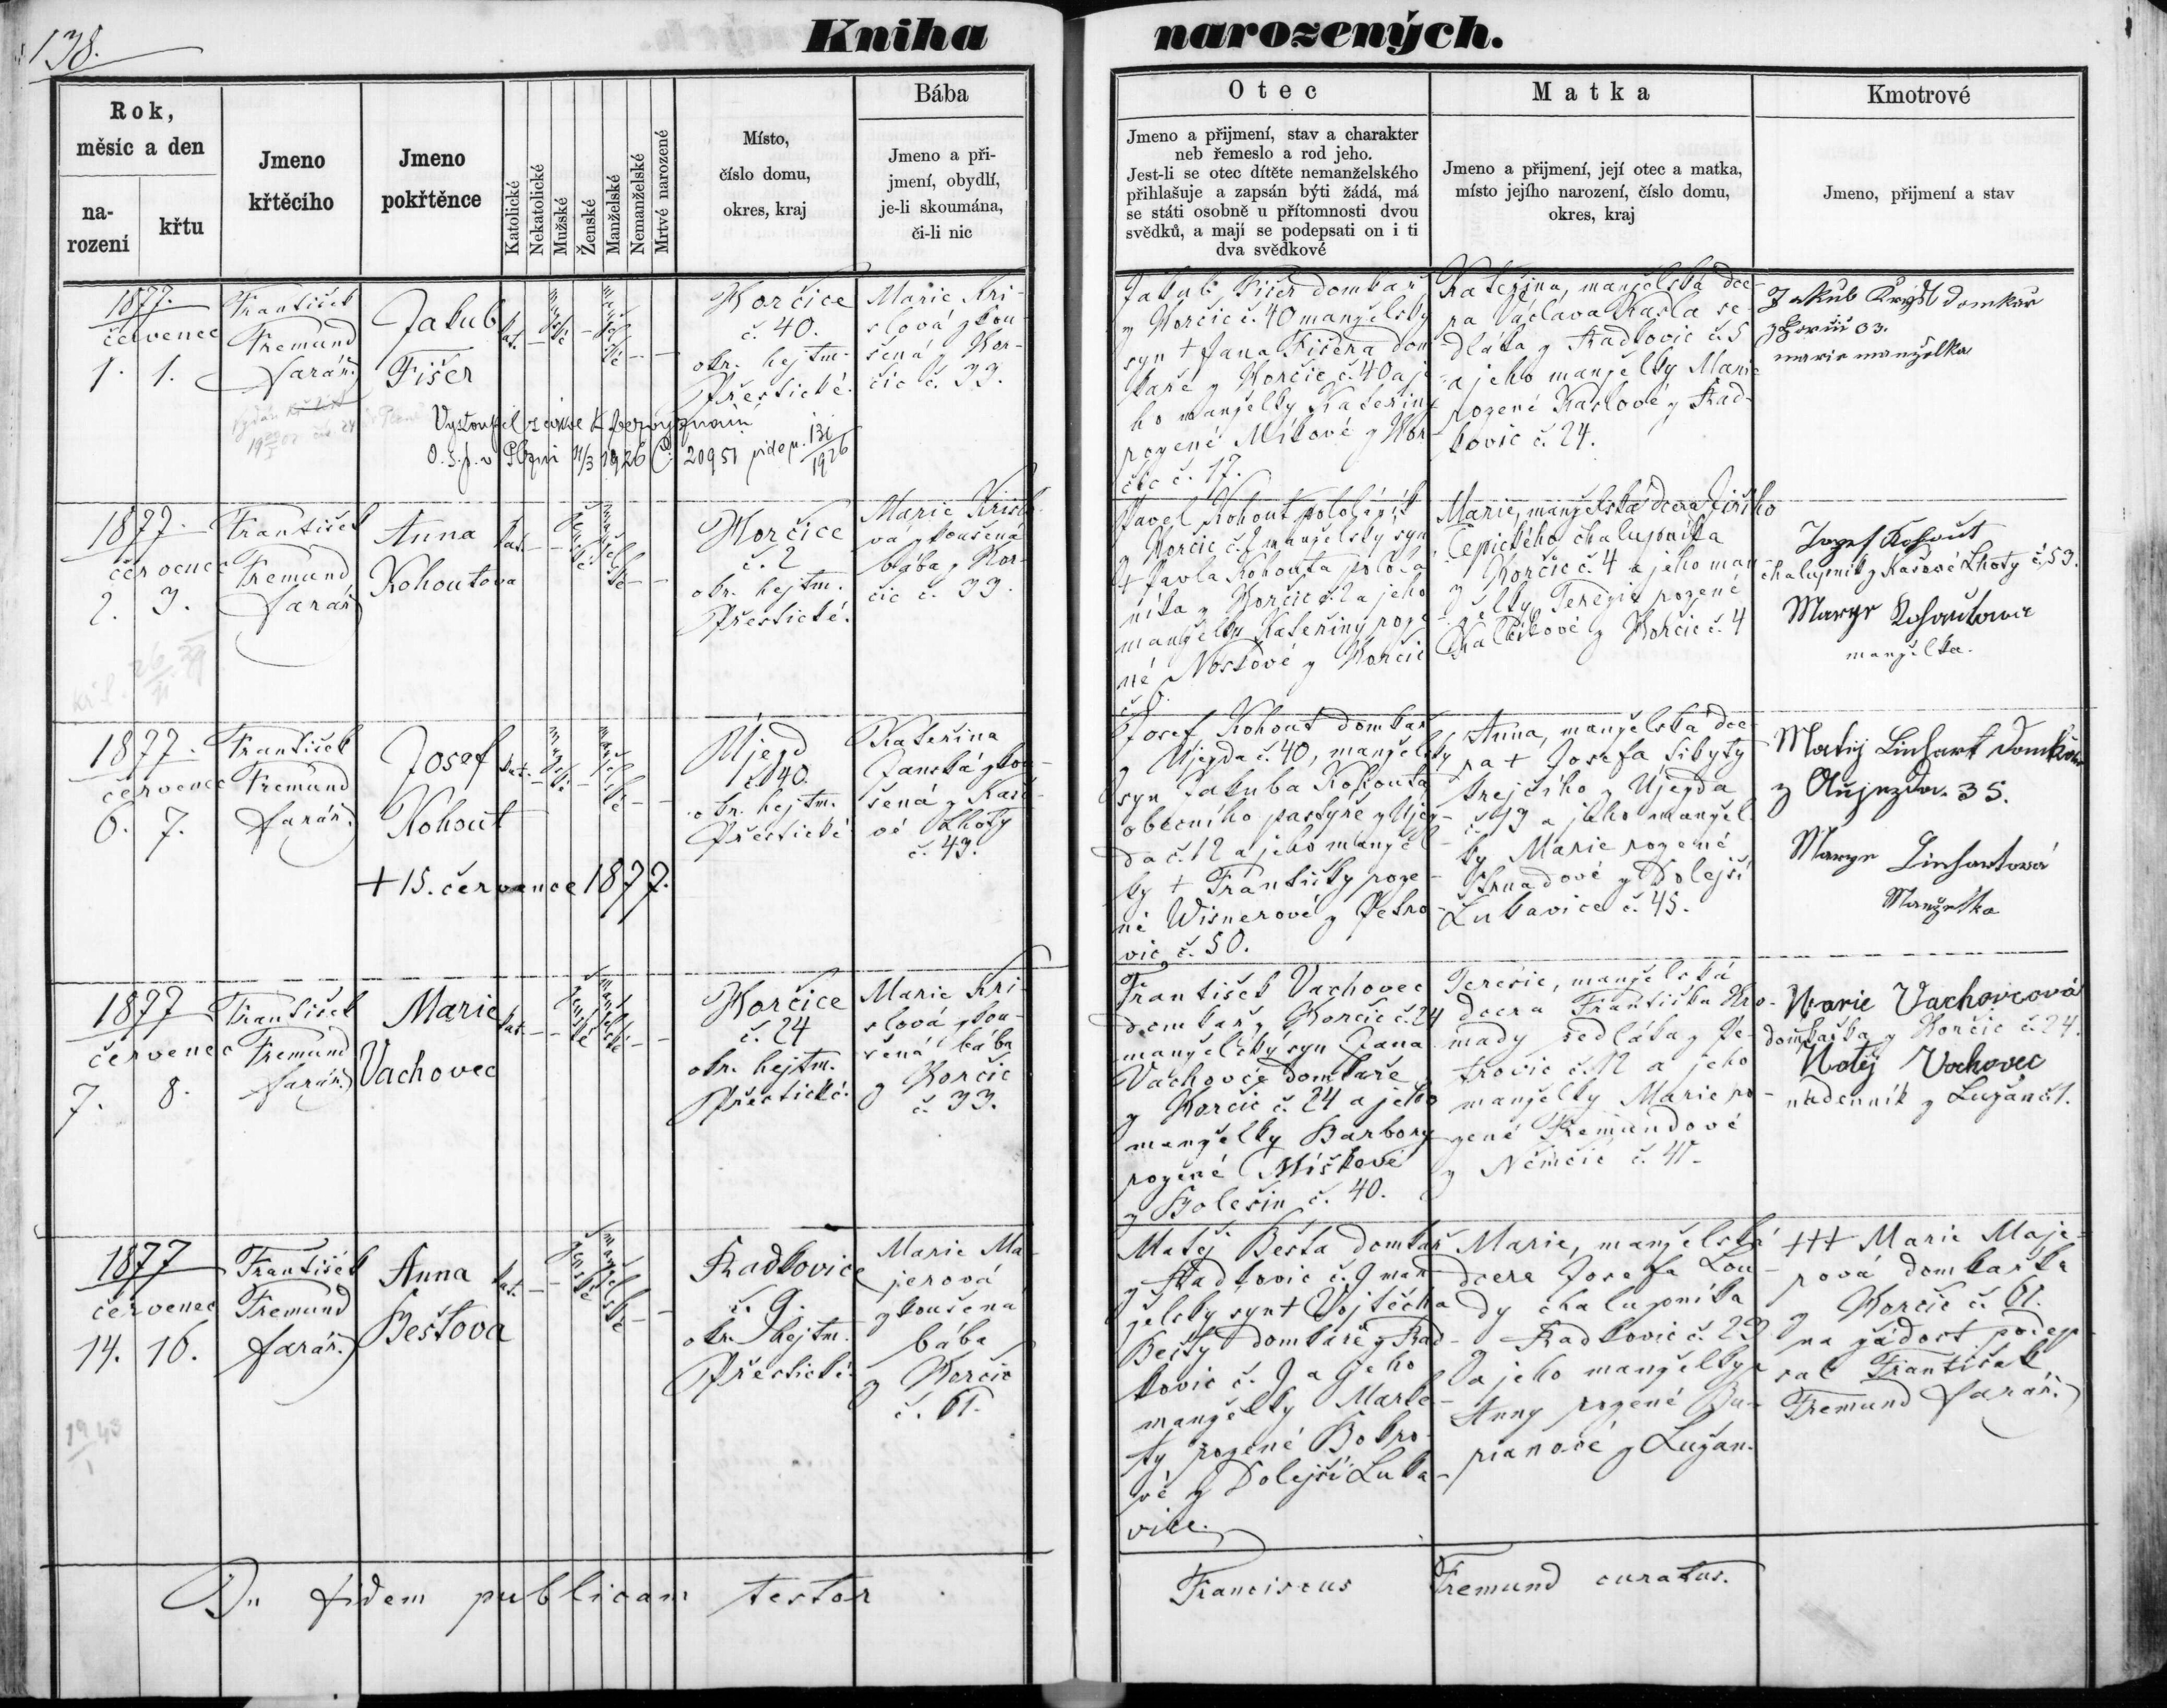 138.
Kniha narozených.
Rok,
měsíc a den
na-
rozeni
křtu
Jmeno
křtěcího
Jmeno
pokřtěnce
Katolické
Nekatolické
Mužské
Ženské
Manželské
Nemanželské
Mrtvé narozené
Místo,
číslo domu,
okres, kraj
Bába
Jmeno a při-
jmení, obydlí,
je-li skoumána,
či-li nic
Otec
Jmeno a přijmení, stav a charakter
neb řemeslo a rod jeho.
Jest-li se otec dítěte nemanželského
přihlašuje a zapsán býti žádá, má
se státi osobně u přítomnosti dvou
svědků, a mají se podepsati on i ti
dva svědkové
Matka
Jmeno a přijmení, její otec a matka,
místo jejího narození, číslo domu,
okres, kraj
Kmotrové
Jmeno, přijmení a stav
1877.
červenec
1. 1.
František
Fremund
farář.
Jakub
Fišer
kat.
mužské
manželské
Horčice
č. 40.
okr. hejtm.
Přestické.
Marie Kri-
slová zkou-
šená z Hor-
čic č. 33.
Jakub Fišer domkař
z Horčic č. 40 manželský
syn + Jana Fišera dom
kaře z Horčic č. 40 a je-
ho manželky Kateřiny
rozené Míkové z Hor
čic č. 17.
Kateřina, manželská dce-
ra Václava Kasla se-
dláka z Radkovic č. 5
a jeho manželky Marie
rozené Kaslové z Rad-
kovic č. 24.
Jakub Krýsl domkář
z Horčic 33.
marie manželka
O.s.p. v Plzni 11/3 1926 č. 20951
131/1926
1877.
červenec
2. 3.
František
Fremund
farář
Anna
Kohoutova
kat.
ženské
manželské
Horčice
č. 2
okr. hejtm.
Přestické.
Marie Krislo-
va zkoušená
bába z Hor-
čic č. 33.
Pavel Kohout pololáník
z Horčic č. 2 manželský syn
+ Pavla Kohouta polola
níka z Horčic č. 2 a jeho
manželky Kateřiny roze
né Noskové z Horčic
č. 6.
Marie, manželská dcera Jiřího
Čepického chalupníka
z Horčic č. 4 a jeho man
želky Terezie rozené
z Horčic č. 4
Jozef Kohout
chalupník z Kasové Lhoty č. 53.
Marye Kohoutowa
manželka.
1877.
červenec
6. 7.
František
Fremund
farář.
Josef
Kohout
+ 15. července 1877.
kat.
mužské
manželské
Újezd
č. 40.
okr. hejtm.
Přestické
Kateřina
Janská zkou-
šená z Kaso-
vé Lhoty
č. 43.
Josef Kohout domkař
z Újezda č. 40, manželský
syn Jakuba Kohouta
obecního pastýře z Újez-
da č. 12 a jeho manžel
ky + Františky roze-
né Wisnerové z Petro-
vic č. 50.
Anna, manželská dce-
ra + Josefa Sibyty
krejčího z Újezda
č. 19 a jeho manžel
ky Marie rozené
Strnadové z Dolejší
Lukavice č. 45.
Matěj Linhart Domkář
z Oůjezda. 35.
Marye Linhartová
Manželka
1877
červenec
7. 8.
František
Fremund
farář.
Marie
Vachovec
kat.
ženské
manželské
Horčice
č. 24
okr. hejtm.
Přestické.
Marie Kri-
slová zkou-
šená bába
z Horčic
č. 33.
František Vachovec
domkař z Horčic č. 24
manželský syn Jana
Vachovce domkaře
z Horčic č. 24 a jeho
manželky Barbory
rozené Míškové
z Bolešin č. 40.
Terezie, manželská
dcera Františka Hro-
mady sedláka z Pe-
trovic č. 12 a jeho
manželky Marie ro-
zené Fremundové
z Němčic č. 41.
Marie Vachovcová
domkařka z Horčic č. 24.
Matěj Vachovec
nádenník z Lužan č. 1.
1877
červenec
14. 16.
František
Fremund
farář.
Anna
Beštova
kat.
ženské
manželské
Radkovice
č. 9.
okr. hejtm.
Přestické.
Marie Ma-
jerová
zkoušená
bába
z Horčic
č. 61.
Matěj Bešta domkař
z Radkovic č. 9 man
želský syn + Vojtěcha
Bešty domkaře z Rad-
kovic č. 9 a jeho
manželky Marke-
ty rozené Bokro-
vé z Dolejší Luka-
vice.
Marie, manželská
dcera Josefa Lou-
dy chalupníka
z Radkovic č. 23
a jeho manželky
Anny rozené Bu-
rianové z Lužan.
+++ Marie Maje-
rová domkařka
z Horčic č. 61.
na žádost podep-
sal František
Fremund farář.
In fidem publicam testor Franciscus Fremund curatus.